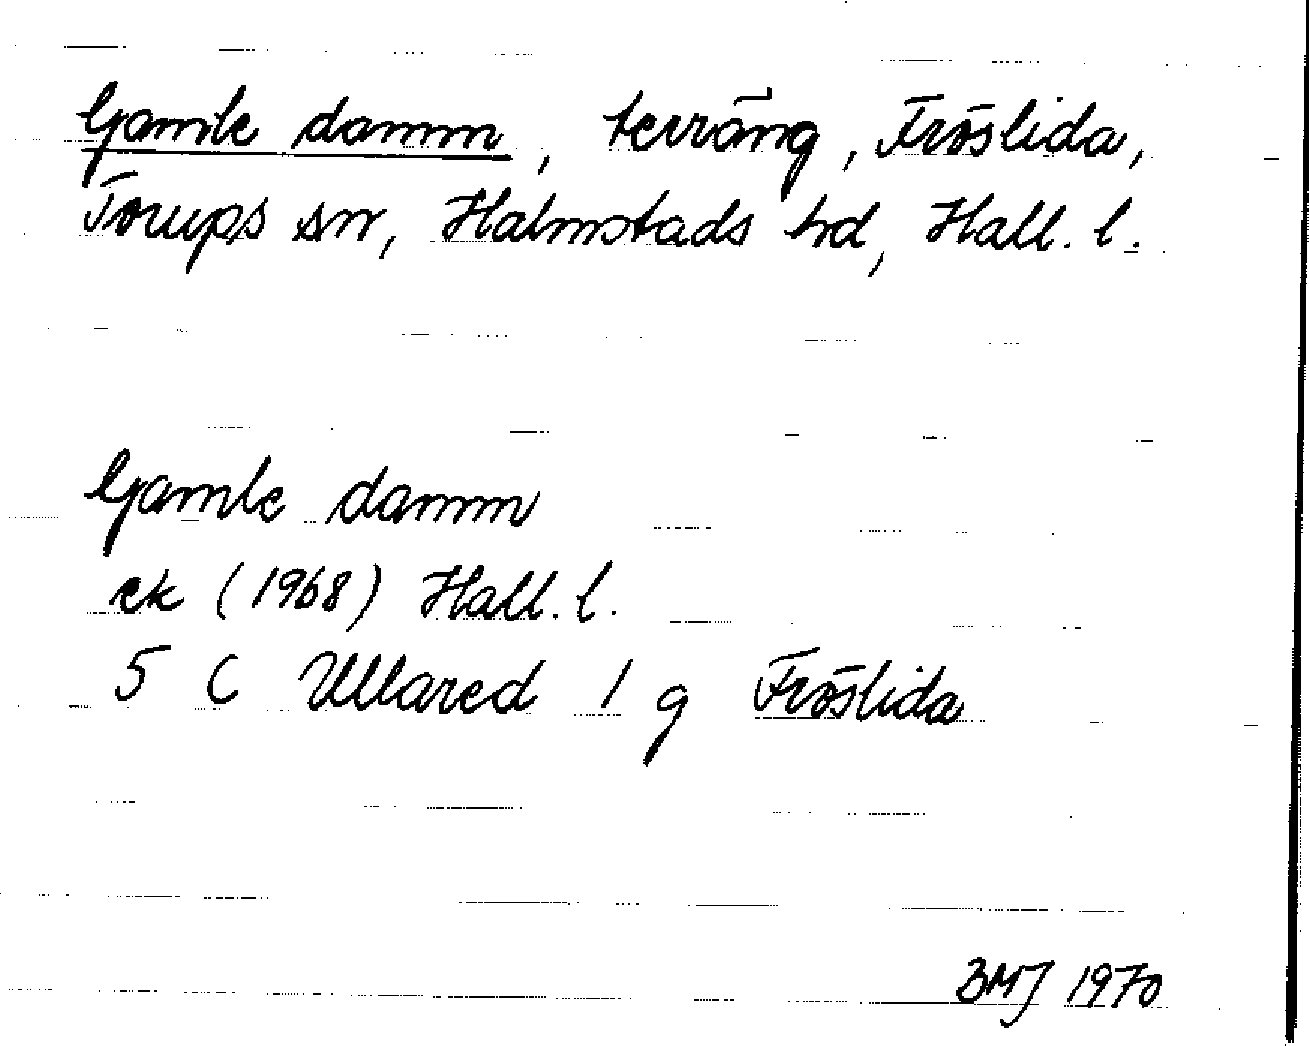 Gamle damm, terräng, Fröslida,
Torups sn, Halmstads hd, Hall. l.
Gamle damm
ek (1968) Hall. l.
5 C Ullared 1 g Fröslida
BMJ 1970